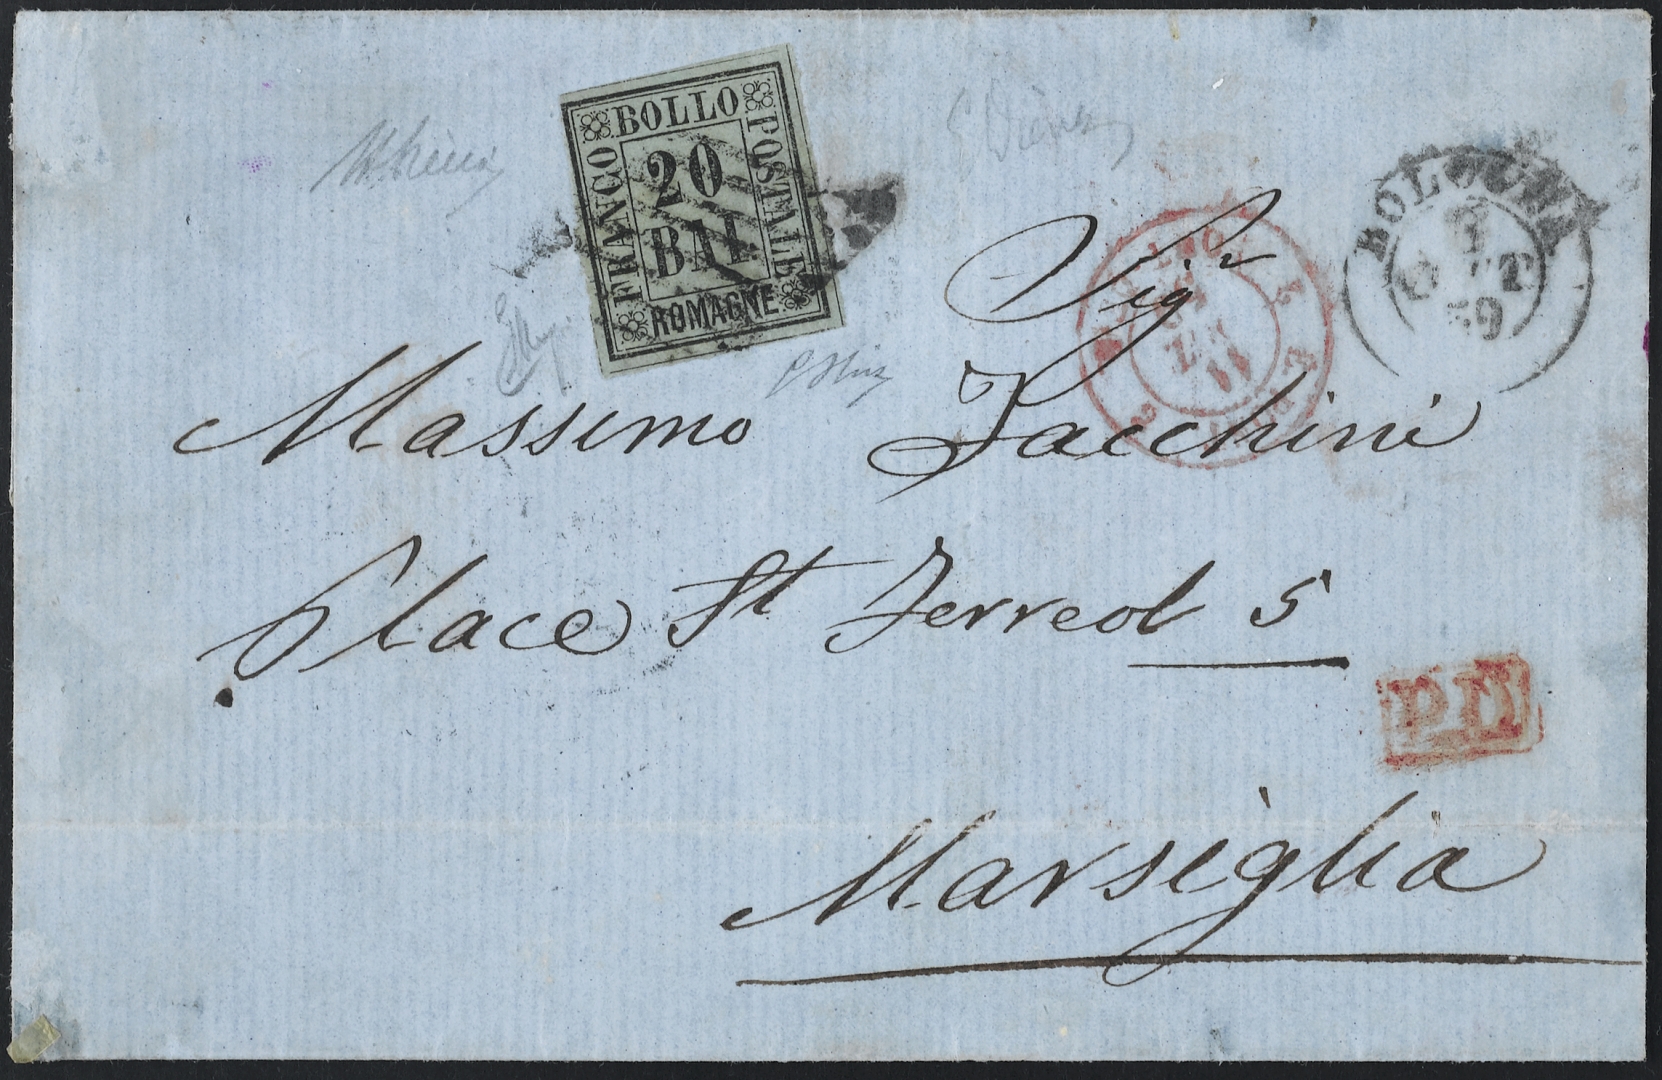 BOLLO
FRANCO
POSTALE
20
BAI
ROMAGNE
BOLOGNA
OTT
59
Sigr
Massimo Jacchini
Place St Ferreol 5
P.D.
Marsiglia